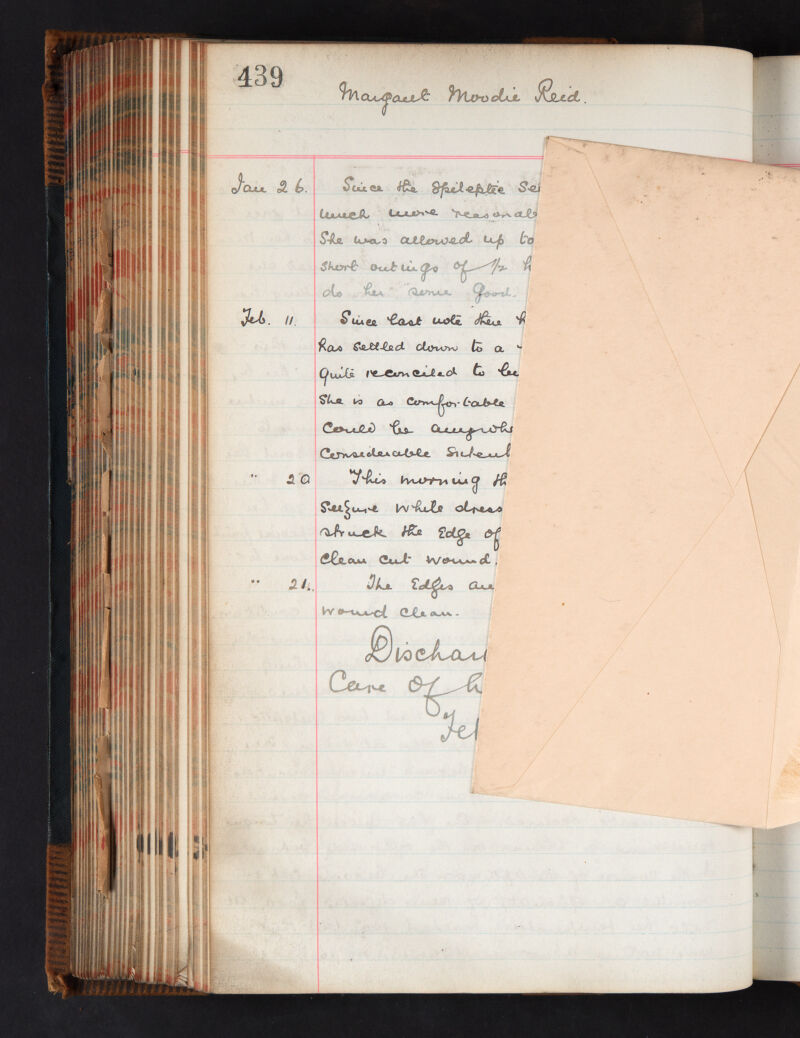 439
Margaret Moodie Reid.
Jan 26. Since the Epileptic Sei
much more reasonabl
She was allowed up to
short outings of 1/2 h
do her some good.
Feb. 11. Since last note there h
has settled down to a
quite reconciled to be
She is as comfortable
could be anywhe
Considerable
" 20 This morning th
Seizure while dress
struck the Edge of
clean cut wound.
" 21. The Edges are
wound clean.
Dischar
Care Of h
Feb